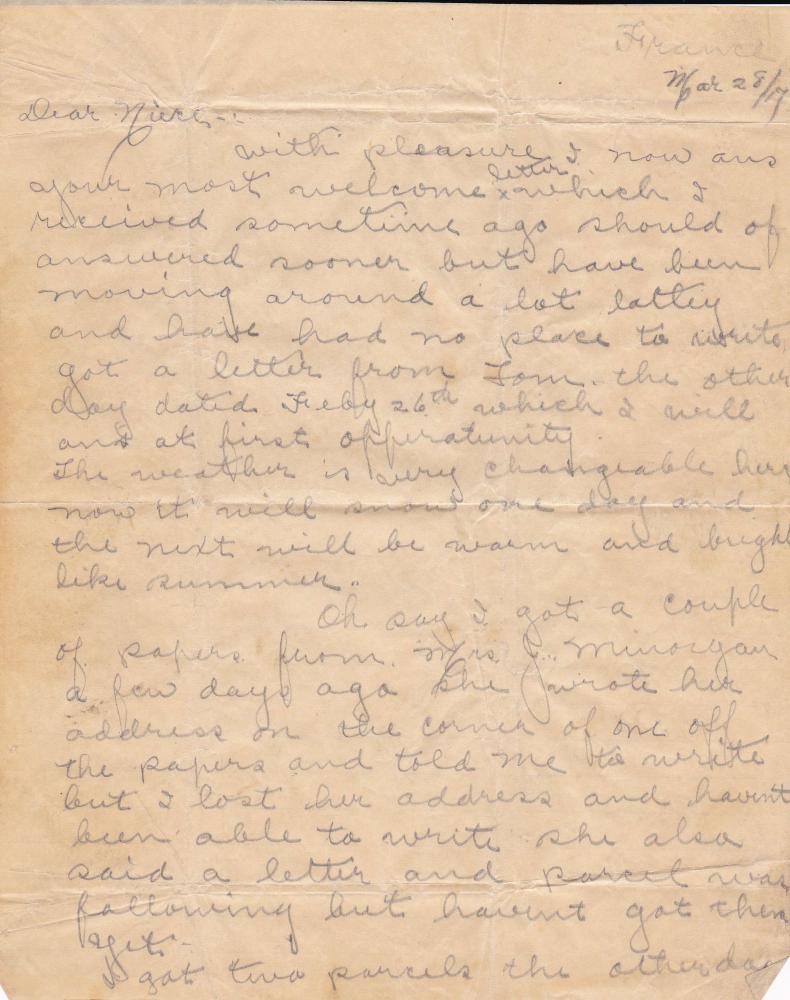 France
Mar 28/17
Dear Niece -:
with pleasure I now ans
your most welcome letter x which I
received sometime ago should of
answered sooner but have been
moving around a lot lattly
and have had no place to write
got a letter from Tom. the other
day dated Feby 26th which I will
ans at first opperatunity.
The weather is very changeable here
now it will snow one day and
the next will be warm and bright
like summer.
Oh say I got a couple
of papers from. Mrs
a few days ago she wrote her
address on the corner of one off
the papers and told me to write
but I lost her address and havent
been able to write she also
said a letter and parcel was
following but havent got them
yet -
I got two parcels the other day